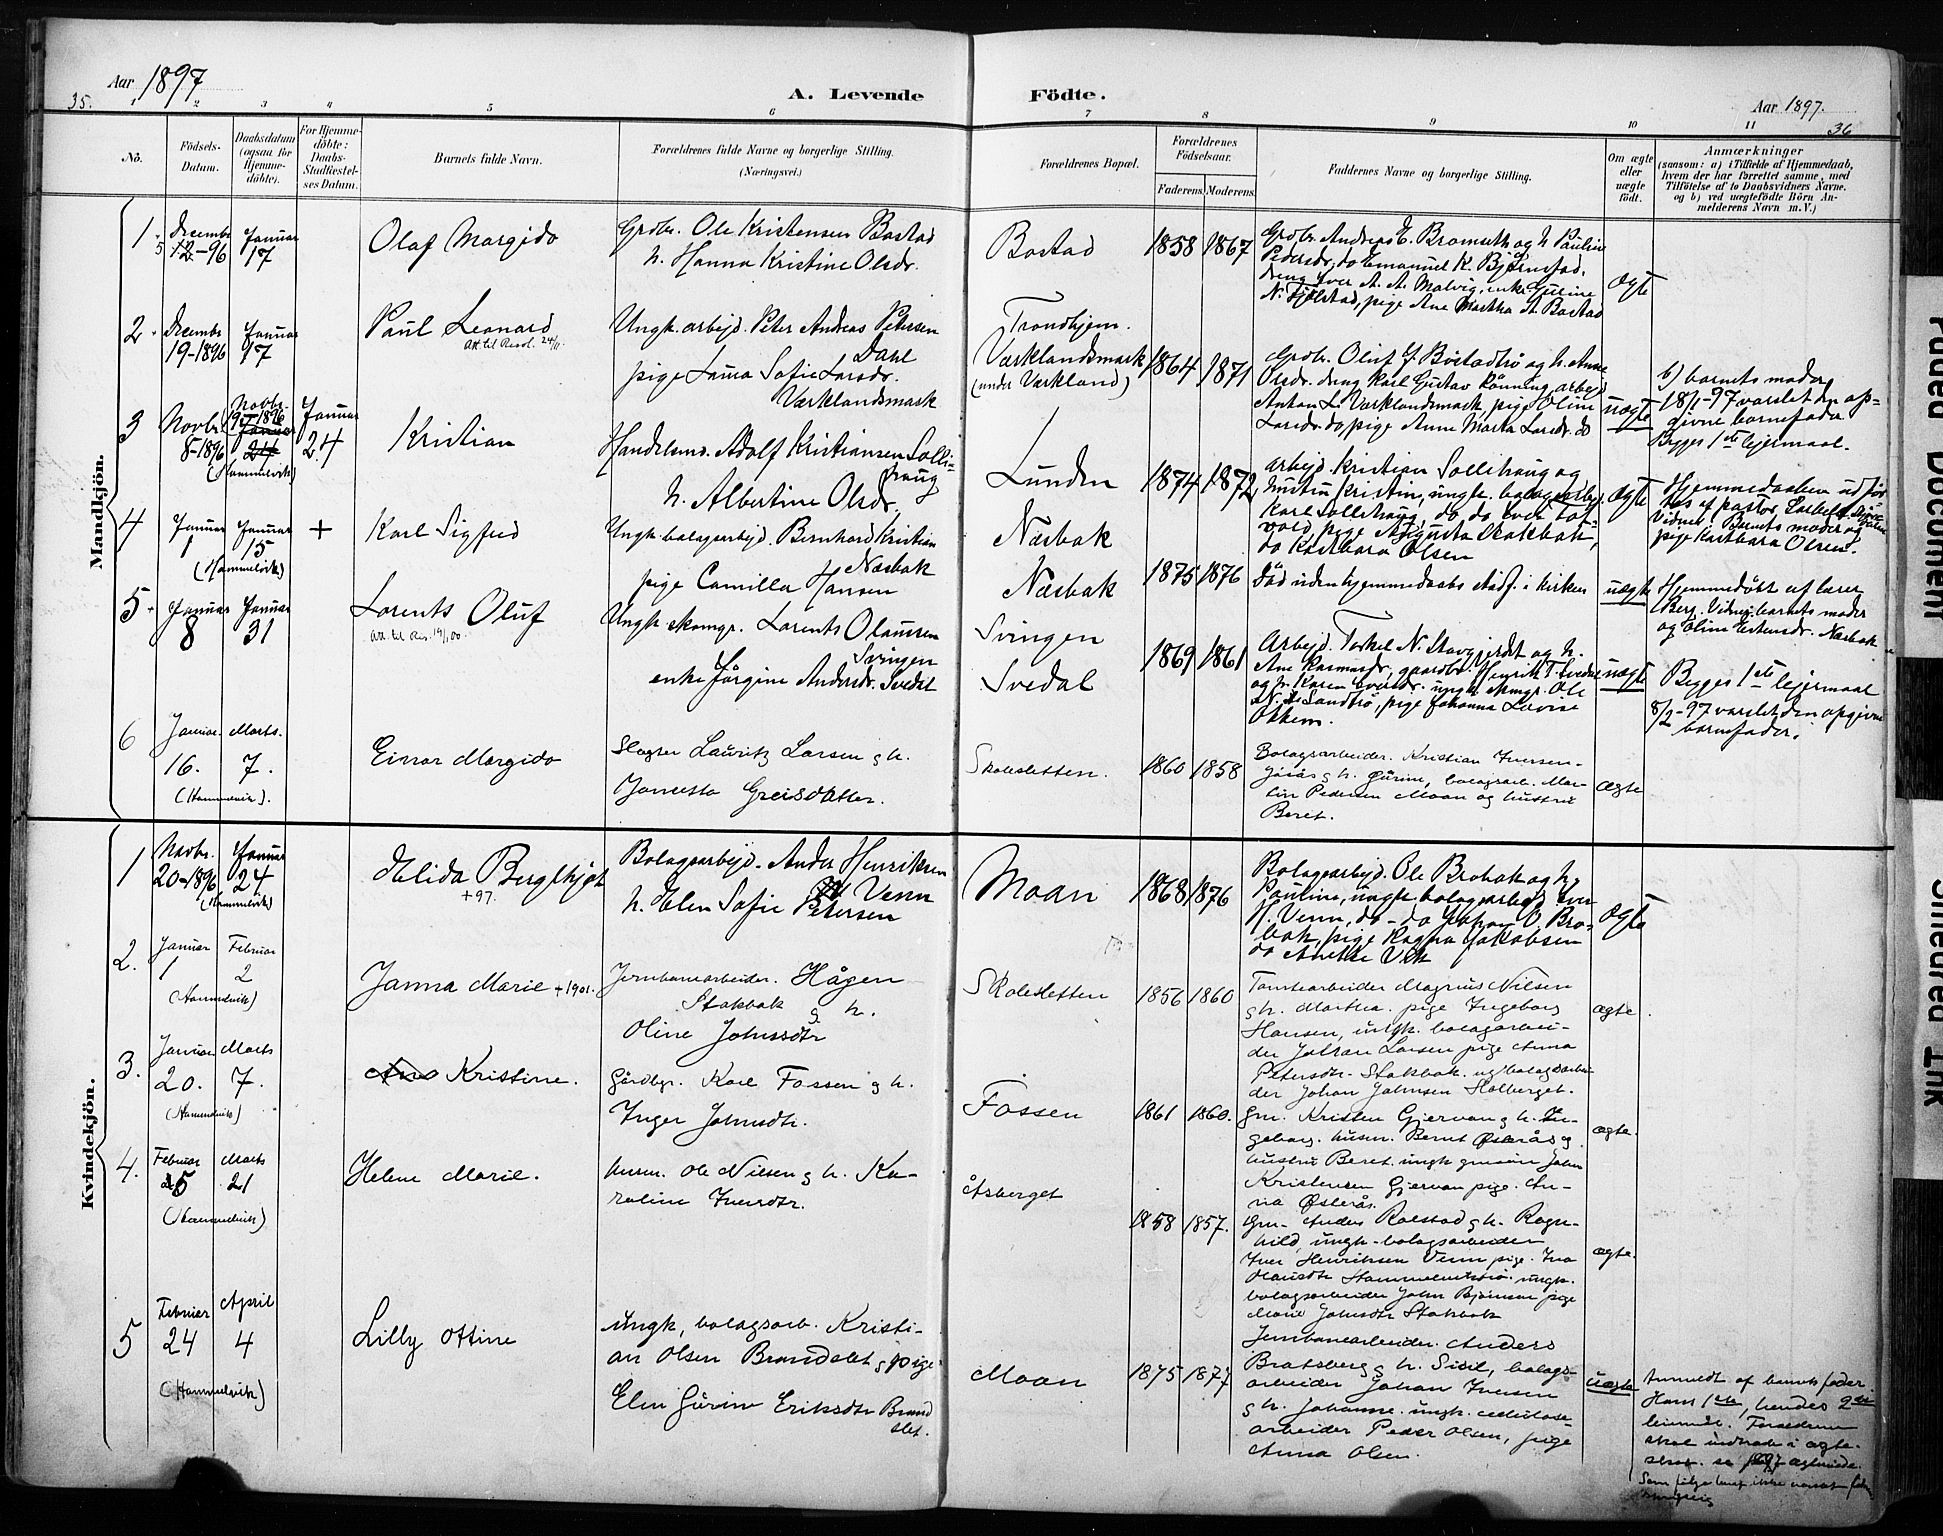 Aar 1897
35.
A. Levende
Födte.
Aar 1897.
36
1 2 3 4 5 6 7 8 9 10 11
No.
Födsels-
Datum.
Daabsdatum
(ogsaa for
Hjemme-
döbte).
For Hjemme-
döbte:
Daabs-
Stadfæstel-
ses Datum.
Barnets fulde Navn.
Forældrenes fulde Navne og borgerlige Stilling.
(Næringsvei.)
Forældrenes Bopæl.
Forældrenes
Födselsaar.
Faderens. Moderens.
Faddernes Navne og borgerlige Stilling.
Om ægte
eller
uægte
födt.
Anmærkninger
(saasom: a) i Tilfælde af Hjemmedaab,
hvem der har forrettet samme, med
Tilföielse af to Daabsvidners Navne.
og b) ved uægtefödte Börn An-
melderens Navn m. V.)
Mandkjön.
1
Decembr
12-96
Januar
17
Olaf Margido
Grdbr. Ole Kristensen Bostad
h. Hanna Kristine Olsdr.
Bostad
1858 1867
Grdbr. Andreas E. Bromseth og h. Pauline
Pedersdr, do Emanuel K. Bjørnstad,
dreng Iver A. A. Malvig, enke Guline
N. Fjølstad, pige Ane Martha A. Bostad
Ogte
2
Decembr
19-1896
Januar
17
Paul Leonard
Att. til Resol. 24/11
Ungk. arbejd. Peter Andreas Petersen
Dahl
pige Laura Sofie Larsdr.
Værklandsmark
Trondhjem.
Værklandsmark
(under Værkland)
1864 1871
Grdbr. Oluf G. Bostadtrø og h. Anne
Olsdr. dreng Karl Gustav Rønning, arbejd
Anton L. Værklandsmark, pige Oline
Larsdr. do, pige Anne Marta Larsdr. do
uægte
b) barnets moder
18/1-97 varslet den op-
givne barnefader
Begges 1ste lejermaal.
3
Novbr
8-1896
Novbr.
19-1896
Januar
24
(Hammelvik)
Januar
24
Kristian
Handelsmd. Adolf Kristiansen Solli-
haug
h. Albertine Olsdr.
Lunden
1874 1872
Arbejd. Kristian Sollihaug og
hustru Kristin, ungk. bolagsarbejd.
Karl Sollihaug, do do Sol-
vold, pige Augusta Stokbak,
do Karlbara Olsen
Ogte
Hjemmedaaben udför
tes af pastor
Vidner: Barnets moder og
pige Karlbara Olsen.
4
Januar
1
Januar
15
(Hammelvik)
+
Karl Sigfred
Ungk. bolagsarbejd. Bernhard Kristian
Næsbak
pige Camilla Hansen
Næsbak
Næsbak
1875 1876
Död uden hjemmedaabs stadf. i kirken
uægte
Hjemmedöbt af lærer
Berg. Vidner: barnets moder
og Oline Estensdr. Næsbak
5
Januar
8
Januar
31
Lorents Oluf
Att. til Res. 19/1 00.
Ungk. skomgr. Lorents Olaussen
Svingen
enke Jörgine Andersdr. Svedal
Svingen
Svedal
1869 1861
Arbejd. Torkel N. Stavgjerdet og h.
Ane Rasmusdr, gaardbr. Henrik T. Svedal
og h. Karen Iversdr. ungk. skmgr. Ole
N. Sandtrø, pige Johanna Lovise
Oxhem.
uægte
Begges 1ste lejermaal
8/2-97 varslet den opgivne
barnefader.
6
Januar
16.
Marts.
7.
(Hammelvik).
Einar Margido
Slagter Lauritz Larsen & h.
Jonetta Greisdatter.
Skolesletten.
1860 1858
Bolagsarbeider. Kristian Iversen-
Jøsås & h. Gurine, bolagsarb. Mar-
tin Pedersen Moan og hustru
Beret.
Ægte
Kvindekjön.
1
Novbr.
20-1896
Januar
24
(Hammelvik)
Helida Bergthjot
+97.
Bolagsarbejd. Anders Henriksen
Venn
h. Elen Sofie Petersen
Moan
1868 1876
Bolagsarbejd. Ole Brobak og h.
Pauline, ungk. bolagsarbejd. Iver
H. Venn, do - do Johan O. Bro-
bak, pige Ragna Jakobsen
do Anette Vik
Ogte
2.
Januar
1
Februar
2
(Hammelvik)
Janna Marie +1901.
Jernbanearbeider. Hågen
Stokbak & h.
Oline Johnsdtr
Skolesletten
1856 1860
Tomtearbeider Magnus Nilsen
& h. Martha. pige Ingeborg
Hansen, ungk. bolagsarbei-
der Johan Larsen pige Anna
Petersdtr. Stokbak. ug. bolagsarbei-
der Johan Johnsen Holberget.
Ægte.
3.
Januar
20.
Marts
7.
(Hammelvik)
Ane Kristine.
Gårdbgr. Karl Fossen & h.
Inger Johnsdtr.
Fossen
1861 1860.
Gm. Kristen Gjervan & h. In-
geborg. husm. Bernt Østerås &
hustru Beret. ungk. gmsøn John
Kristensen Gjervan pige. An-
na Østerås.
Ægte.
4.
Februar
5
Marts
21
(Hammelvik)
Helene Marie.
husm. Ole Nilsen & h. Ka-
roline Iversdtr.
Åsberget
1858 1857.
Gm- Anders Rolstad & h. Ragn-
hild, ungk-bolagsarbeider
Iver Henriksen Venn pige.
Olausdtr Hammelviktrø. ungk.
bolagsarbeider John Bjørnsen pige
Marie Johnsdtr Stokbak
Ægte.
5
Februar
24
April
4
(Hammelvik)
Lilly Ottine
ungk, bolagsarb. Kristi-
an Olsen Brandslet & pige
Elen Gurine Eriksdtr Brand
slet.
Moan
1875 1877
Jernbanearbeider. Anders
Bratsberg & h. Sisil, bolags-
arbeider Johan Iversen
& h. Johanne. ungk. cellulose-
arbeider Peder Olsen, pige
Anna Olsen.
Uægte
Anmeldt af barnets fader.
Hans 1ste, hendes 2det
leiermål. Forældrene
skal indtræde i ægte-
skab. se 1897 ægteviede.